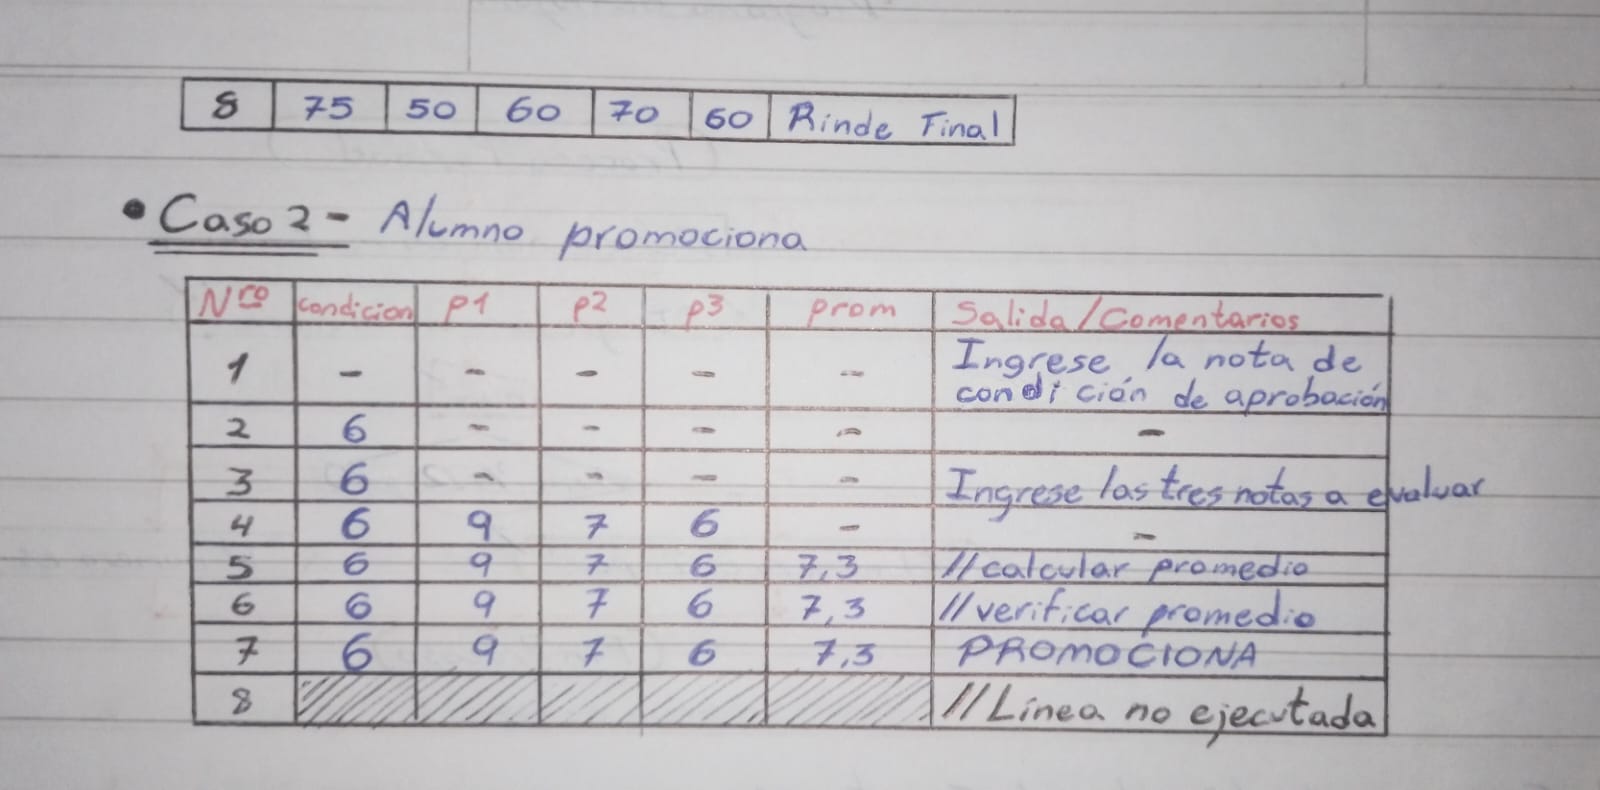 8 75 50 60 70 60 Rinde Final
• Caso 2 - Alumno promociona
Nro condicion p1 p2 p3 prom Salida/Comentarios
1 - - - - - Ingrese la nota de
condición de aprobación
2 6 - - - - -
3 6 - - - - Ingrese las tres notas a evaluar
4 6 9 7 6 - -
5 6 9 7 6 7,3 //calcular promedio
6 6 9 7 6 7,3 //verificar promedio
7 6 9 7 6 7,3 PROMOCIONA
8 //Línea no ejecutada